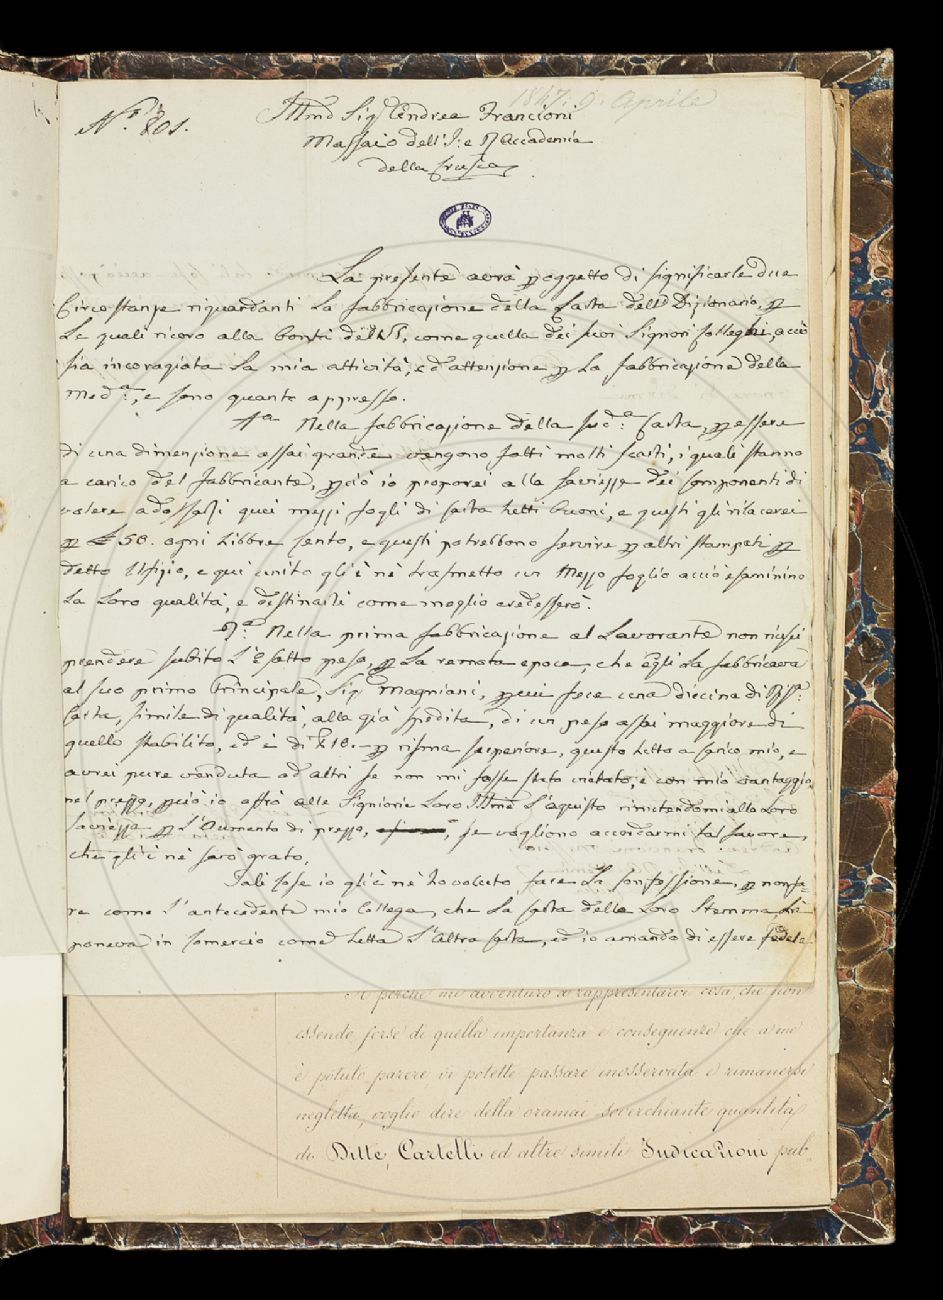 1847. 9. Aprile
N.° 801.
Illmo Sig.r Andrea Francioni
Massaio dell'I: e R Accademia
della Crusca
La presente avrà p oggetto di significarle due
Circostanze riguardanti La fabbricazione della Carta dello Dizionario, p
Le quali ricoro alla bontà come quella dei suoi Signori Colleghi, acciò
sia incoragiata La mia attività, ed attenzione p La fabbricazione della
Med.a, e sono quanto appresso.
1a Nella fabbricazione della sud.a Carta, p essere
di una dimenzione assai grande vengono fatti molti scarti, i quali stanno
a carico del fabbricante, pciò io proporei alla Saviezza dei Componenti di
volere adossarsi quei mezzi fogli di carta detti buoni, e questi gli rilacerei
p £ 50. ogni Libbre cento, e questi potrebbono servire p altri stampati p
detto Ufizio, e qui unito gli è né trasmetto un Mezzo foglio acciò esaminino
La Loro qualità, e destinarli come meglio credessero.
2.a Nella prima fabbricazione al Lavorante non riuscì
prendere subito L'Esatto peso, p La remota epoca, che Egli La fabbricava
al suo primo Principale, Sig. Magniani, p cui fece una diecina di Ris.e
Carta, simile di qualità, alla già spedita, di un peso assai maggiore di
quello stabilito, ed è di £ 18.- p risma superiore, questo tutto a carico mio, e
avrei pure venduta ad altri se non mi fosse stato vietato, e con mio vantaggio,
nel prezzo, pciò io offro alle Signiorie Loro Illme L'aquisto rimettendomi alla Loro
Saviezza p L'Aumento di prezzo, se vogliono accordarmi tal favore,
che gli è né sarò grato.
Tali cose io gli è né ho voluto fare La Confessione, p non fa-
re come l'antecedente mio Collega, che La carta della Loro Stemma, Li
poneva in Comercio come tutta L'altra carta, ed io amando di essere fedele
A perché mi avventuro a rappresentarvi cosa, che non
essendo forse di quella importanza e conseguenze che a me
è potuto parere vi potette passare inosservata e rimanersi
negletta, voglio dire della oramai soverchiante quantità
di Ditte, Cartelli ed altre simili Indicazioni pub-